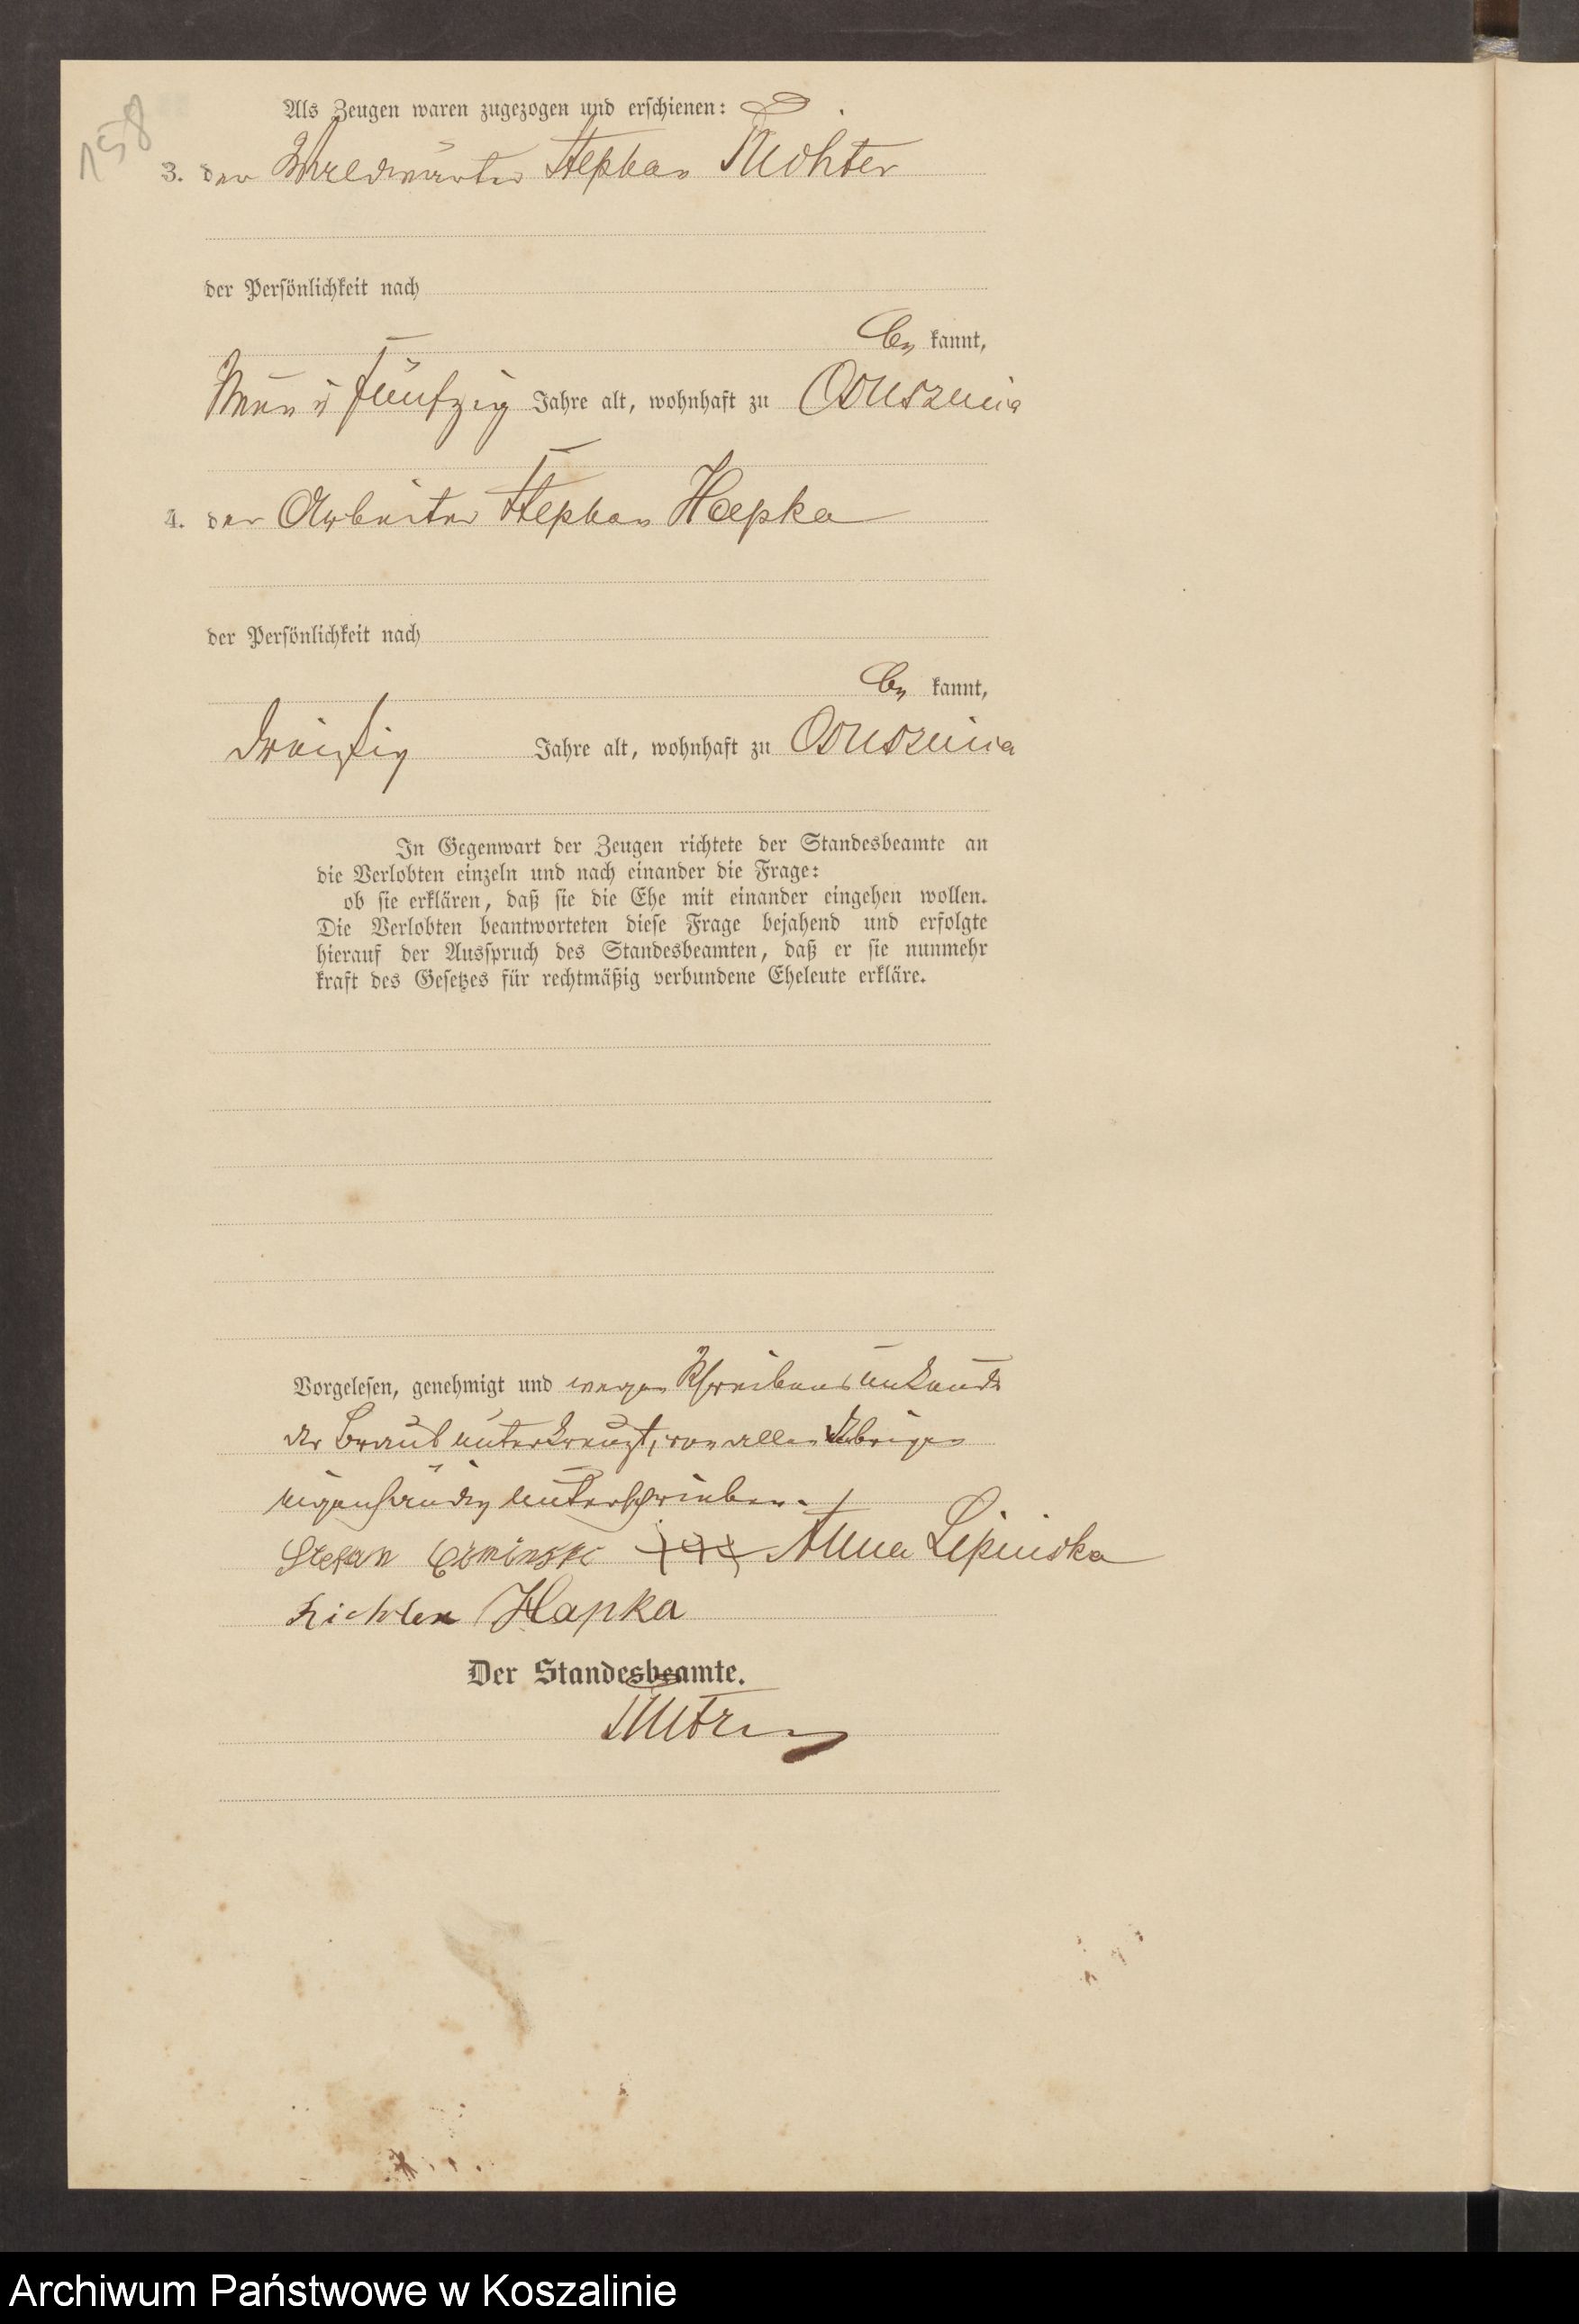 158
Als Zeugen waren zugezogen und erschienen:
3. der Stephan Richter
der Persönlichkeit nach
be kannt,
Neun u fünfzig Jahre alt, wohnhaft zu Ossusznica
4. der Arbeiter Stephan Hapka
der Persönlichkeit nach
be kannt,
dreißig Jahre alt, wohnhaft zu Ossusznica
In Gegenwart der Zeugen richtete der Standesbeamte an
die Verlobten einzeln und nach einander die Frage:
ob sie erklären, daß sie die Ehe mit einander eingehen wollen.
Die Verlobten beantworteten diese Frage bejahend und erfolgte
hierauf der Ausspruch des Standesbeamten, daß er sie nunmehr
kraft des Gesetzes für rechtmäßig verbundene Eheleute erkläre.
Vorgelesen, genehmigt und wegen Schreibensunkunde
der Braut unterkreuzt, von allen Uebrigen
eigenhändig unterschrieben.
Stefan +++ Anna Lipinska
Richter Hapka
Der Standesbeamte.